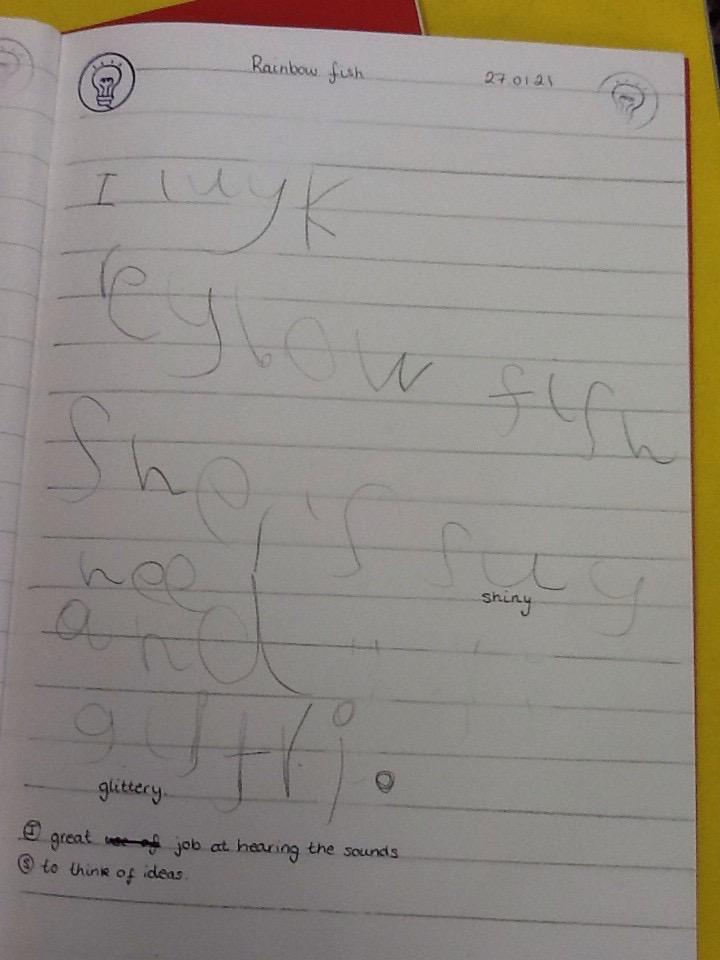 Rainbow fish 27.01.21
I luyk
reybow fish
She is suy
shiny
nee
and
gujtri.
glittery.
I great job at hearing the sounds
S to think of ideas.